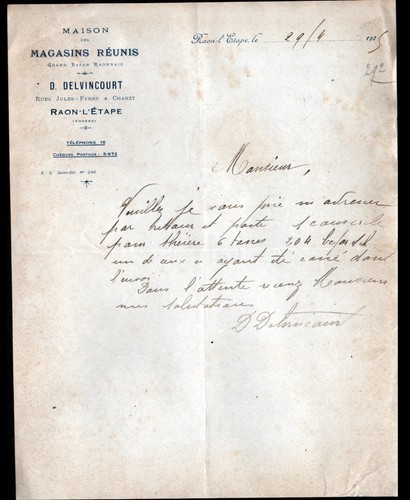 MAISON
DES
MAGASINS RÉUNIS
GRAND BAZAR RAONNAIS
D. DELVINCOURT
RUES JULES-FERRY & CHANZY
RAON-L'ÉTAPE
(VOSGES)
TÉLÉPHONE 15
CHÈQUES POSTAUX:
Raon-l'Étape, le 29/4 1925
212
Monsieur,
Veuillez je vous prie m'adresser
par retour et poste 1 couvercle
pour théière 6 tasses 204
un de ceux ci ayant été cassé dans
l'envoi
Dans l'attente recevez Monsieur
mes salutations
D Delvincourt